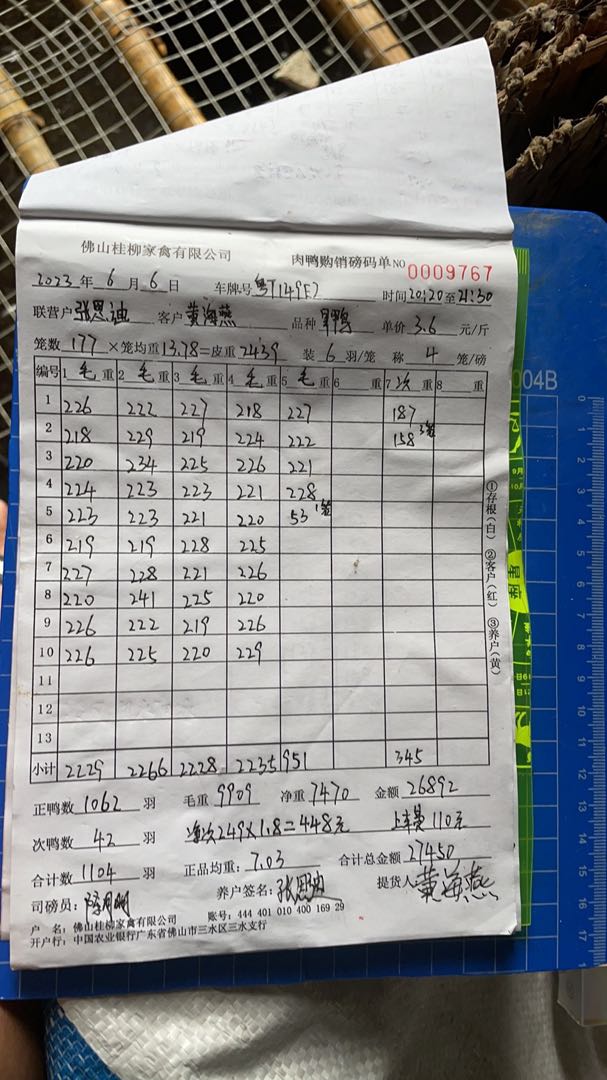 佛山桂柳家禽有限公司 肉鸭购销磅码单 NO 0009767
2023年6月6日 车牌号 粤T149F7 时间20:20至21:30
联营户 张思迪 客户 黄海燕 品种 单价 3.6 元/斤
笼数 177 ×笼均重 13.78=皮重 2439 装 6 羽/笼 称 4 笼/磅
编号 1 毛 重 2 毛 重 3 毛 重 4 毛 重 5 毛 重 6 重 7 次 重 8 重
1 226 222 227 218 227 187
2 218 229 219 224 222 158 3笼
3 220 234 225 226 221
4 224 223 223 221 228
5 223 223 221 220 53 1笼
6 219 219 228 225
7 227 228 221 226
8 220 241 225 220
9 226 222 219 226
10 226 225 220 229
11
12
13
小计 2229 2266 2228 2235 951 345
①存根(白) ②客户(红) ③养户(黄)
正鸭数 1062 羽 毛重 9909 净重 7470 金额 26892
次鸭数 42 羽 净次249×1.8=448元 上车费110元
合计数 1104 羽 正品均重: 7.03 合计总金额 27450
司磅员: 养户签名: 张思迪 提货人 黄海燕
户 名: 佛山桂柳家禽有限公司 账号: 444 401 010 400 169 29
开户行: 中国农业银行广东省佛山市三水区三水支行
004B
0 1 2 3 4 5 6 7 8 9 10 11 12 13 14 15 16 17
星座